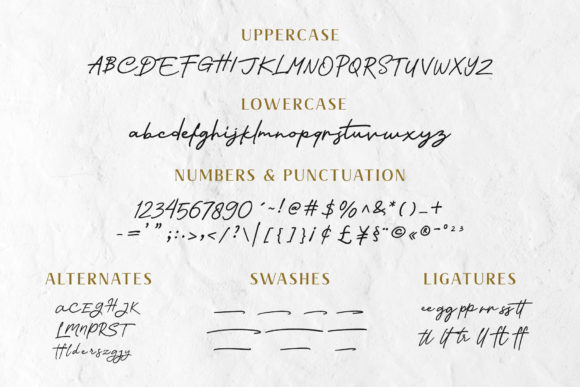 UPPERCASE
ABCDEFGHIJKLMNOPQRSTUVWXYZ
LOWERCASE
abcdefghijklmnopqrstuvwxyz
NUMBERS & PUNCTUATION
1234567890 ´~!@#$%^&*()_+
-='”;:.>,</?\|[{]}¡¢£¥§¨©«®¯°²³
ALTERNATES
SWASHES
LIGATURES
aCEGHJK
LMnPRST
ee gg pp rr ss tt
tl lt tr ll ft ff